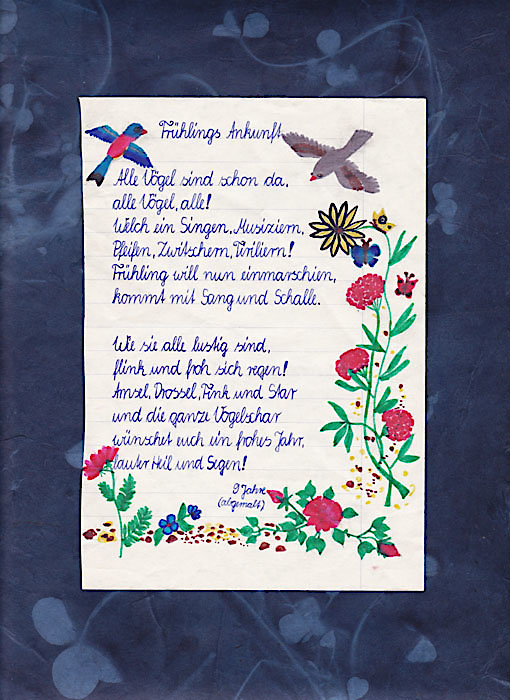 Frühlings Ankunft
Alle Vögel sind schon da,
alle Vögel, alle!
Welch ein Singen, Musiziern,
Pfeifen, Zwitschern, Tiriliern!
Frühling will nun einmarschien,
kommt mit Sang und Schalle.
Wie sie alle lustig sind,
flink und froh sich regen!
Amsel, Drossel, Fink und Star
und die ganze Vogelschar
wünschet euch ein frohes Jahr,
lauter Heil und Segen!
9 Jahre
(abgemalt)